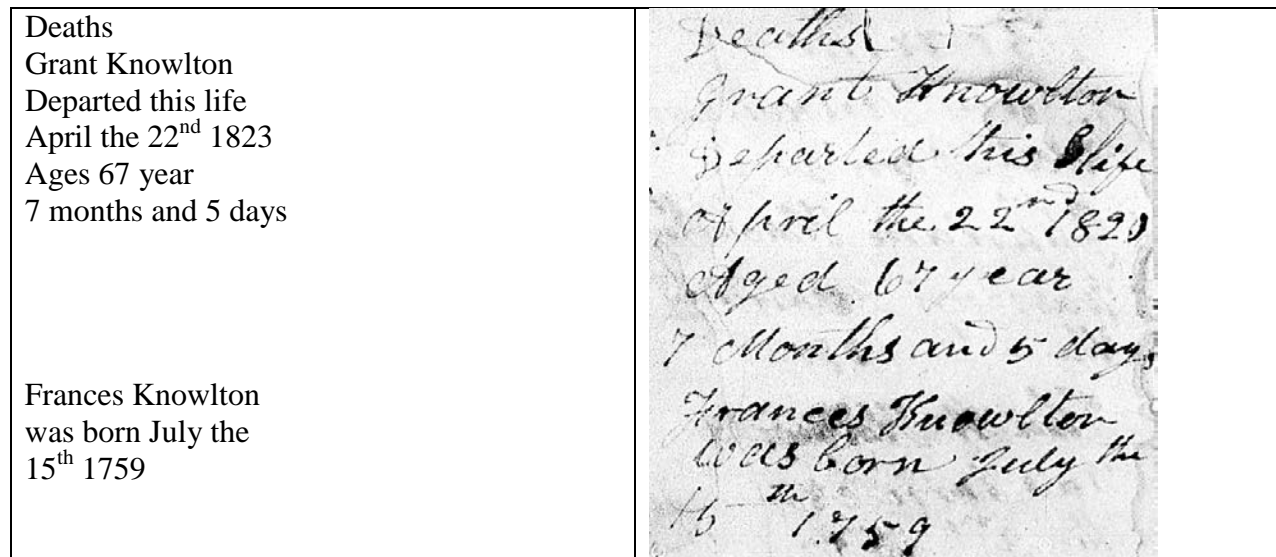 Deaths
Grant Knowlton
Departed this life
April the 22nd 1823
Ages 67 year
7 months and 5 days
Frances Knowlton
was born July the
15th 1759
Deaths
Grant Knowlton
Departed this life
April the 22nd 1823
Aged 67 year
7 Months and 5 days
Frances Knowlton
was born July the
15th 1759